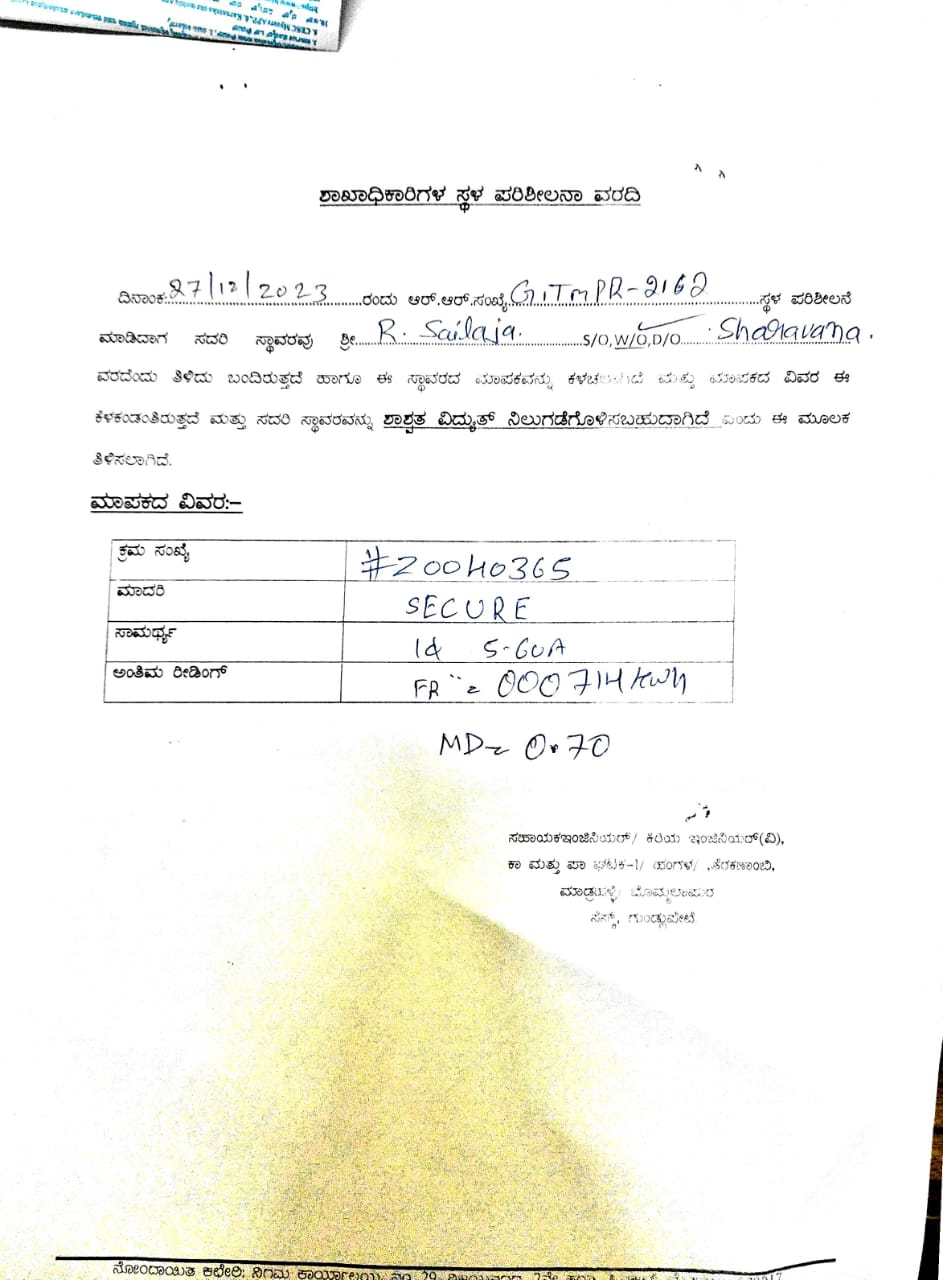 ಶಾಖಾಧಿಕಾರಿಗಳ ಸ್ಥಳ ಪರಿಶೀಲನಾ ವರದಿ
ದಿನಾಂಕ:27/12/2023 ರಂದು ಆರ್.ಆರ್.ಸಂಖ್ಯೆ GITMPR-2162 ಸ್ಥಳ ಪರಿಶೀಲನೆ
ಮಾಡಿದಾಗ ಸದರಿ ಸ್ಥಾವರವು ಶ್ರೀ R. Sailaja. S/O,W/O,D/O Sharavana.
ವರದೆಂದು ತಿಳಿದು ಬಂದಿರುತ್ತದೆ ಹಾಗೂ ಈ ಸ್ಥಾವರದ ಮಾಪಕವನ್ನು ಮತ್ತು ಮಾಪಕದ ವಿವರ ಈ
ಕೆಳಕಂಡಂತಿರುತ್ತದೆ ಮತ್ತು ಸದರಿ ಸ್ಥಾವರವನ್ನು ಶಾಶ್ವತ ವಿದ್ಯುತ್ ನಿಲುಗಡೆಗೊಳಿಸಬಹುದಾಗಿದೆ ಎಂದು ಈ ಮೂಲಕ
ತಿಳಿಸಲಾಗಿದೆ.
ಮಾಪಕದ ವಿವರ:-
ಕ್ರಮ ಸಂಖ್ಯೆ #20040365
ಮಾದರಿ SECURE
ಸಾಮರ್ಥ್ಯ 1ϕ 5-60A
ಅಂತಿಮ ರೀಡಿಂಗ್ FR = 000714 KWH
MD= 0.70
ಸಹಾಯಕಇಂಜಿನಿಯರ್/ ಕಿರಿಯ ಇಂಜಿನಿಯರ್(ವಿ),
ಕಾ ಮತ್ತು ಪಾ ಘಟಕ-1/ ಹಂಗಳ/ ,ತೆರಕಣಾಂಬಿ,
ಮಾಡ್ರಹಳ್ಳಿ/ ಬೊಮ್ಮಲಾಪುರ
ಸೆಸ್ಕ್, ಗುಂಡ್ಲುಪೇಟೆ
ನೋಂದಾಯಿತ ಕಛೇರಿ: ನಿಗಮ ಕಾರ್ಯಾಲಯ